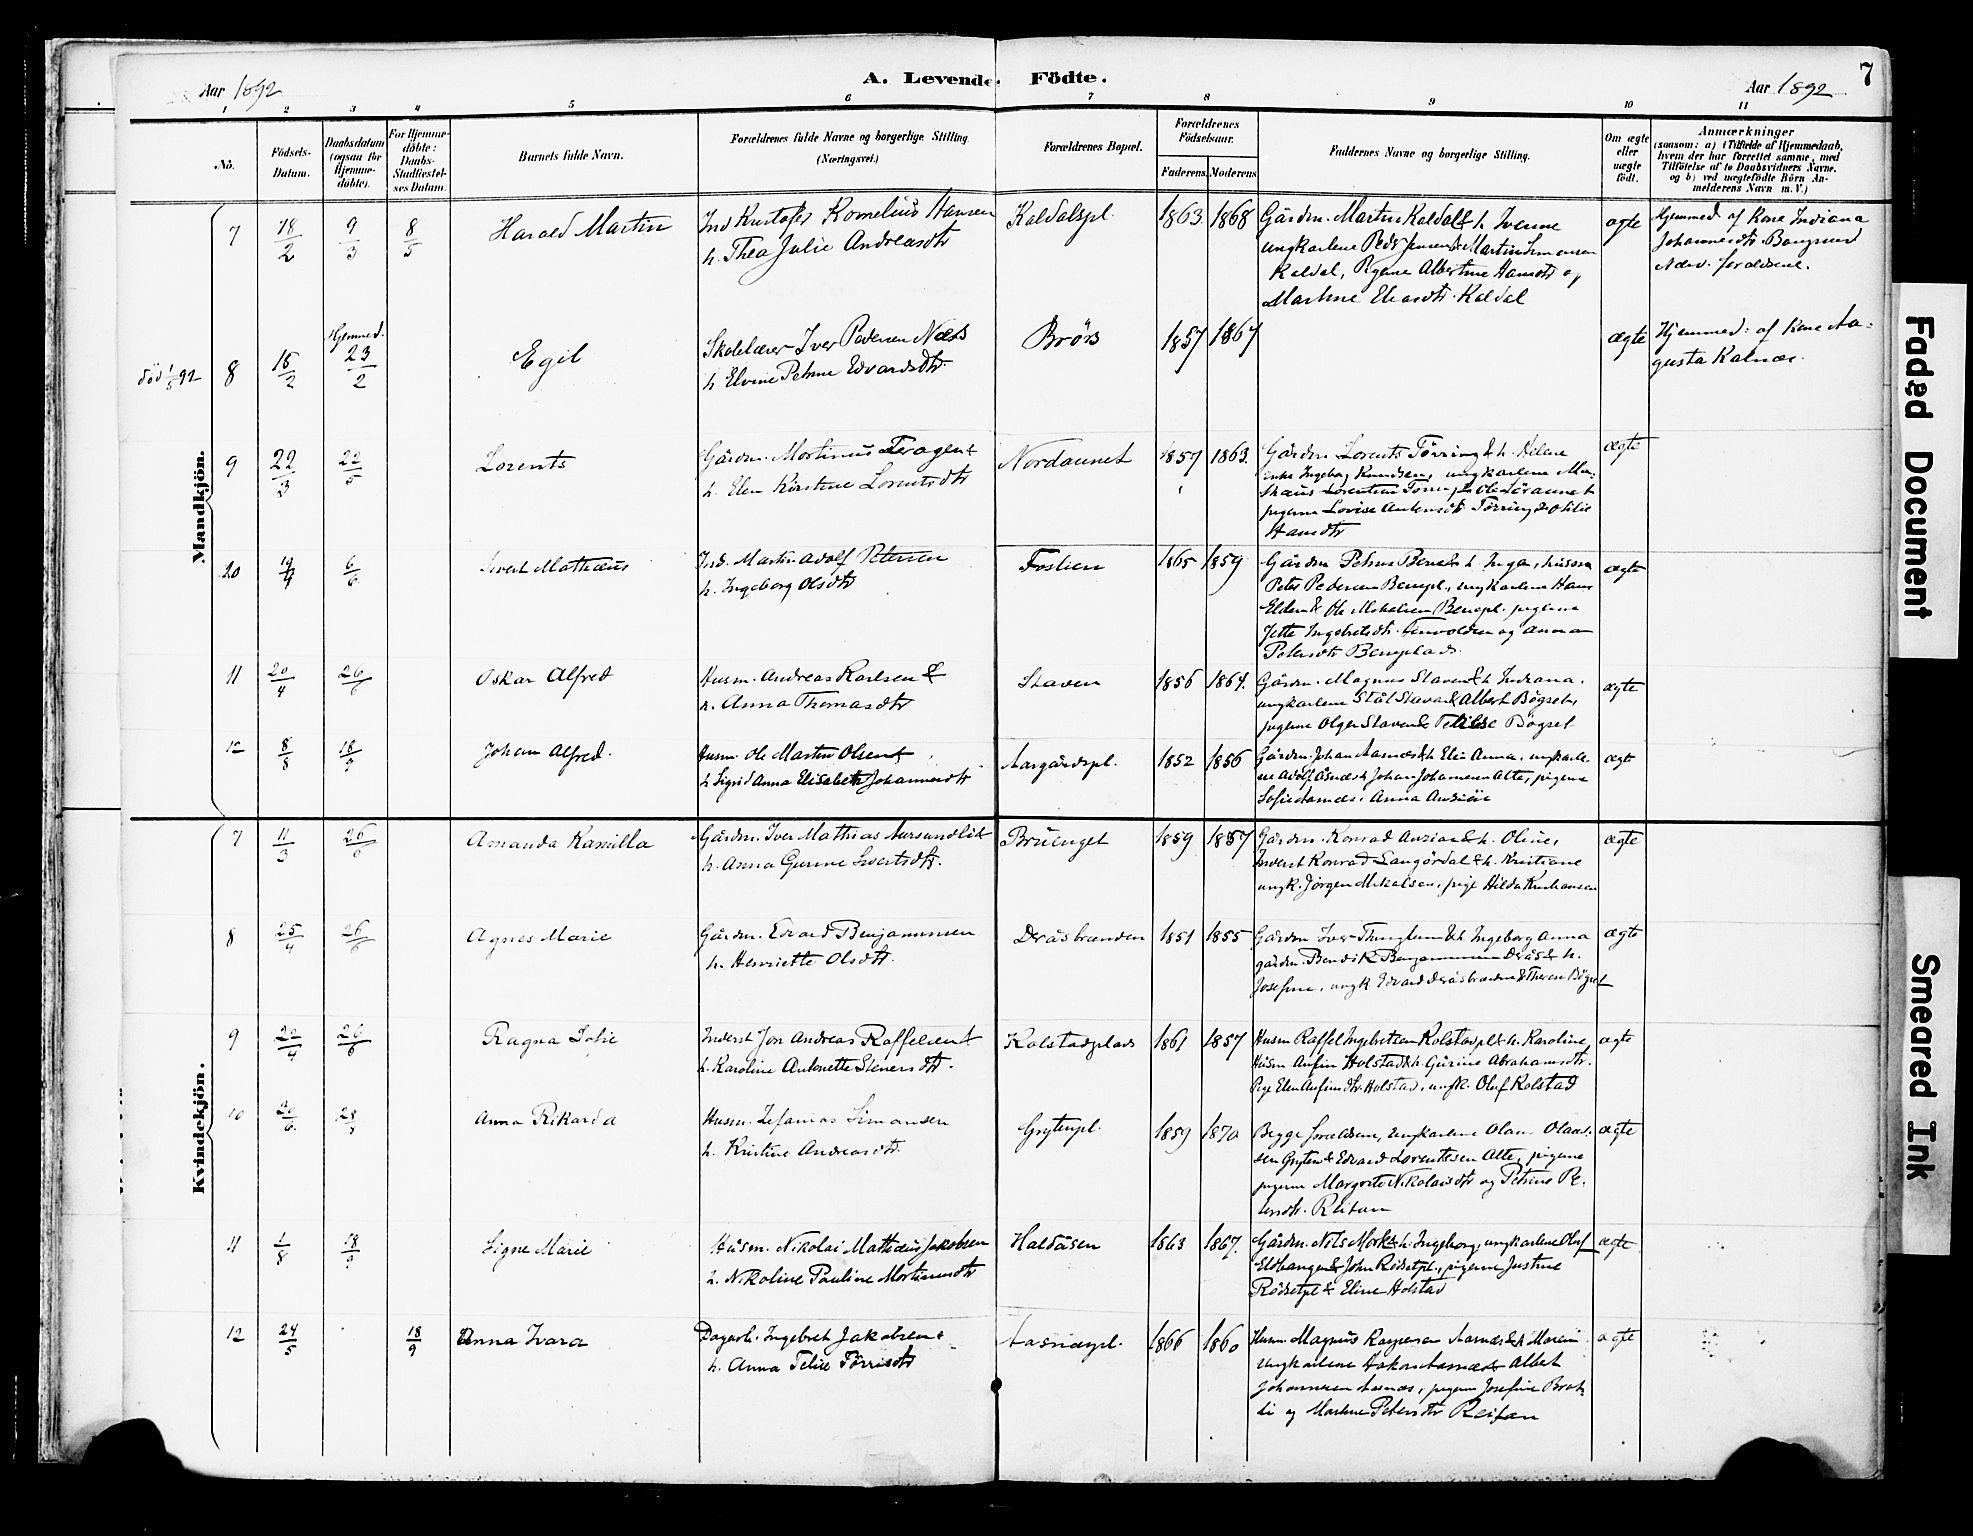 Aar 1892
A. Levende Födte.
Aar 1892
7
1 2 3 4 5 6 7 8 9 10 11
No.
Födsels-
Datum.
Daabsdatum
(ogsaa for
Hjemme-
döbte).
For Hjemme-
döbte:
Daabs-
Stadfæstel-
ses Datum.
Barnets fulde Navn.
Forældrenes fulde Navne og borgerlige Stilling
(Næringsvei.)
Forældrenes Bopæl.
Forældrenes
Födselsaar.
Faderens. Moderens
Faddernes Navne og borgerlige Stilling.
Om ægte
eller
uægte
födt.
Anmærkninger
(saasom: a) i Tilfælde af Hjemmedaab,
hvem der har forrettet samme, med
Tilföielse af to Daabsvidners Navne.
og b) ved uægtefödte Börn An-
melderens Navn m. V.)
Mandkjön.
7 18/2 9/3 8/5 Harald Martin
Ind Kristofer Kornelius Hansen
h. Thea Julie Andreasdtr
Kaldalspl. 1863 1868
Gårdm. Martin Kaldal & h.
ungkarlene Peder Jensen & Martin Simonsen
Kaldal, Pigerne Albertine Hansdtr og
Martine Eliasdtr Kaldal
ægte
Hjemmed. af Kone Indiana
Johannesdtr
Nærv. forældrene.
død 1/5 92
8 15/2 Hjemmed. 23/2 Egil
Skolelærer Iver Pedersen Næss
h. Elvine Petrine Edvardsdtr.
Brørs 1857 1867
ægte
Hjemmed: af Kone Au-
gusta Kalnæs.
9 22/3 22/5 Lorents
Gårdm. Mortinus Fragen &
h. Elen Kirstine Lorentsdtr
Nordaunet 1857 1863.
Gårdm Lorents Tørring & h. Helene
enke Ingeborg Knudsen, ungkarlene Ma-
thæus Lorentsen Tørring & Ole Løraunet
pigerne Lovise Antonsdtr Tørring & Otilie
Hansdtr
ægte
10 19/4 6/6 Sivert Mathæus
Ind. Martin Adolf Petersen
h. Ingeborg Olsdtr
Foslien 1865 1859
Gårdm Petrus & h Inga, husm
Peter Pedersen, ungkarlene Hans
Elden & Ole Mikalsen pigerne
Jette Ingebretsdtr og Anna
Petersdtr
ægte
11 20/4 26/6 Oskar Alfred
Husm. Andreas Karlsen &
h. Anna Thomasdtr
Staven 1856 1864.
Gårdm. Magnus Staven & h Indiana,
ungkarlene Ståle Staven & Albert Bøgset,
pigerne Olga Staven & Bøgset
ægte
12 8/8 18/9 Johan Alfred.
Husm. Ole Martin Olsen &
h Sigrid Anna Elisabeth Johannesdtr
Aargårdspl. 1852 1856
Gårdm. Johan Aasnæs & h Elen Anna, ungkarle-
ne Adolf Åsnæs & Johan Johannesen Alte, pigerne
Sofie Aasnæs, Anna
ægt
Kvindekjön.
7 11/3 26/6 Amanda Kamilla
Gårdm. Iver Mathias Aursundlid
h. Anna Gurine Sivertsdtr.
Bruenget 1859 1857
Gårdm. Konrad & h. Oline,
Inderst Konrad Langørdal & h. Kristiane
ungk. Jørgen Mikalsen, pige Hilda
ægte
8 25/4 26/6 Agnes Marie
Gårdm. Edvard Benjaminsen
h. Henriette Olsdtr.
Deråsbrænden 1851 1855
Gårdm Iver & h Ingeborg Anna
gårdm. Bendik Benjaminsen Derås & h.
Josefine, ungk Edvard Deråsbrænden & Bøgset
ægte
9 20/4 26/6 Ragna Sofie
Inderst Jon Andreas Raffelsen &
h. Karoline Antonette Stenersdtr.
Kolstadplads 1861 1857
Husm Raffel Ingebretsen Kolstadpl & h. Karoline,
Husm Anfin Holstad & h Gurine Abrahamsdtr.
Pige Elen Anfinsdtr. Holstad, ungk. Oluf Kolstad
ægte
10 20/6 Anna Rikarda
Husm. Sefanias Simonsen
h. Kristine Andreasdtr.
Grytenpl. 1859 1870
Begge forældrene, ungkarlene Olaus Olaus-
sen Gryten & Edvard Lorentssen Alte, pigerne
pigerne Margrete Nikolaisdtr og Petrine Pe-
Reitan
ægte
11 1/8 18/9 Signe Marie
Husm. Nikolai Mathæus Jakobsen
h. Nikoline Pauline Mortinusdtr
Haldåsen 1863 1867.
Gårdm. Nils Mork & h. Ingeborg, ungkarlene Oluf
& John Rødsetpl., pigerne Justine
Rødsetpl & Eline Holstad
ægte
12 24/5 18/9 Anna Ivara
Dagarb. Ingebret Jakobsen &
h. Anna Tørrisdtr
Aasnæspl. 1866 1860
Husm. Magnus Kaspersen Aasnæs & h Maren
ungkarlene Hakon Aasnæs & Albert
Johannesen Aasnæs, pigerne Josefine Brat-
li og Martine Petersdtr Reitan
ægte
Faded Document
Smeared Ink